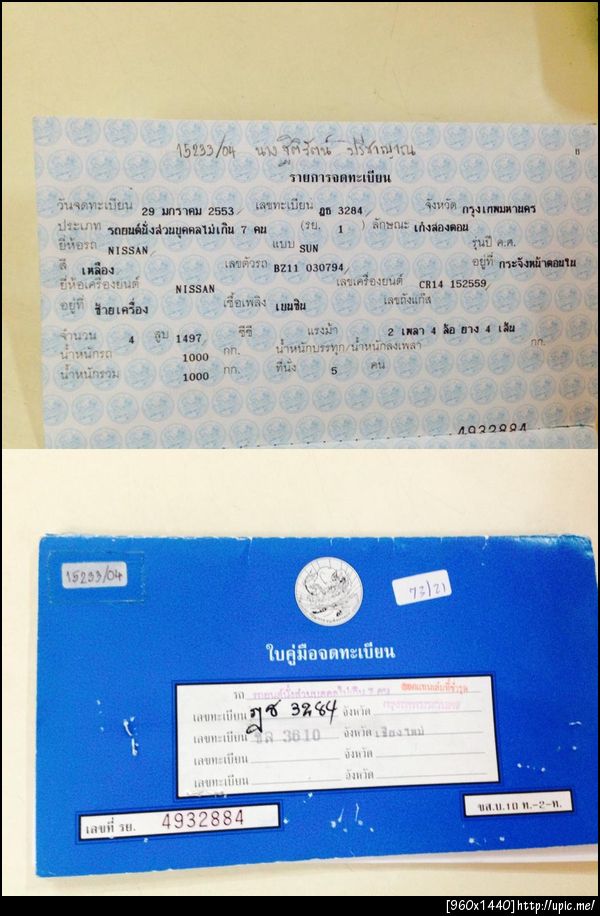 15233/04 นาง ฐิติรัตน์ ปรีชาญาณ
8
รายการจดทะเบียน
วันจดทะเบียน 29 มกราคม 2553 เลขทะเบียน ฎธ 3284 จังหวัด กรุงเทพมหานคร
ประเภท รถยนต์นั่งส่วนบุคคลไม่เกิน 7 คน (รย. 1) ลักษณะ เก๋งสองตอน
ยี่ห้อรถ NISSAN แบบ SUN รุ่นปี ค.ศ.
สี เหลือง เลขตัวรถ BZ11 030794 อยู่ที่ กระจังหน้าตอนใน
ยี่ห้อเครื่องยนต์ NISSAN เลขเครื่องยนต์ CR14 152559
อยู่ที่ ซ้ายเครื่อง เชื้อเพลิง เบนซิน เลขถังแก๊ส
จำนวน 4 สูบ 1497 ซีซี แรงม้า 2 เพลา 4 ล้อ ยาง 4 เส้น
น้ำหนักรถ 1000 กก. น้ำหนักบรรทุก/น้ำหนักลงเพลา กก.
น้ำหนักรวม 1000 กก. ที่นั่ง 5 คน
4932884
15233/04
73/21
ใบคู่มือจดทะเบียน
รถ รถยนต์นั่งส่วนบุคคลไม่เกิน 7 คน
เลขทะเบียน ฎธ 3284 จังหวัด กรุงเทพมหานคร
เลขทะเบียน 3610 จังหวัด เชียงใหม่
เลขทะเบียน จังหวัด
เลขทะเบียน จังหวัด
เลขที่ รย. 4932884
ขส.บ.10 ท.-2-ท.
[960x1440]http://upic.me/